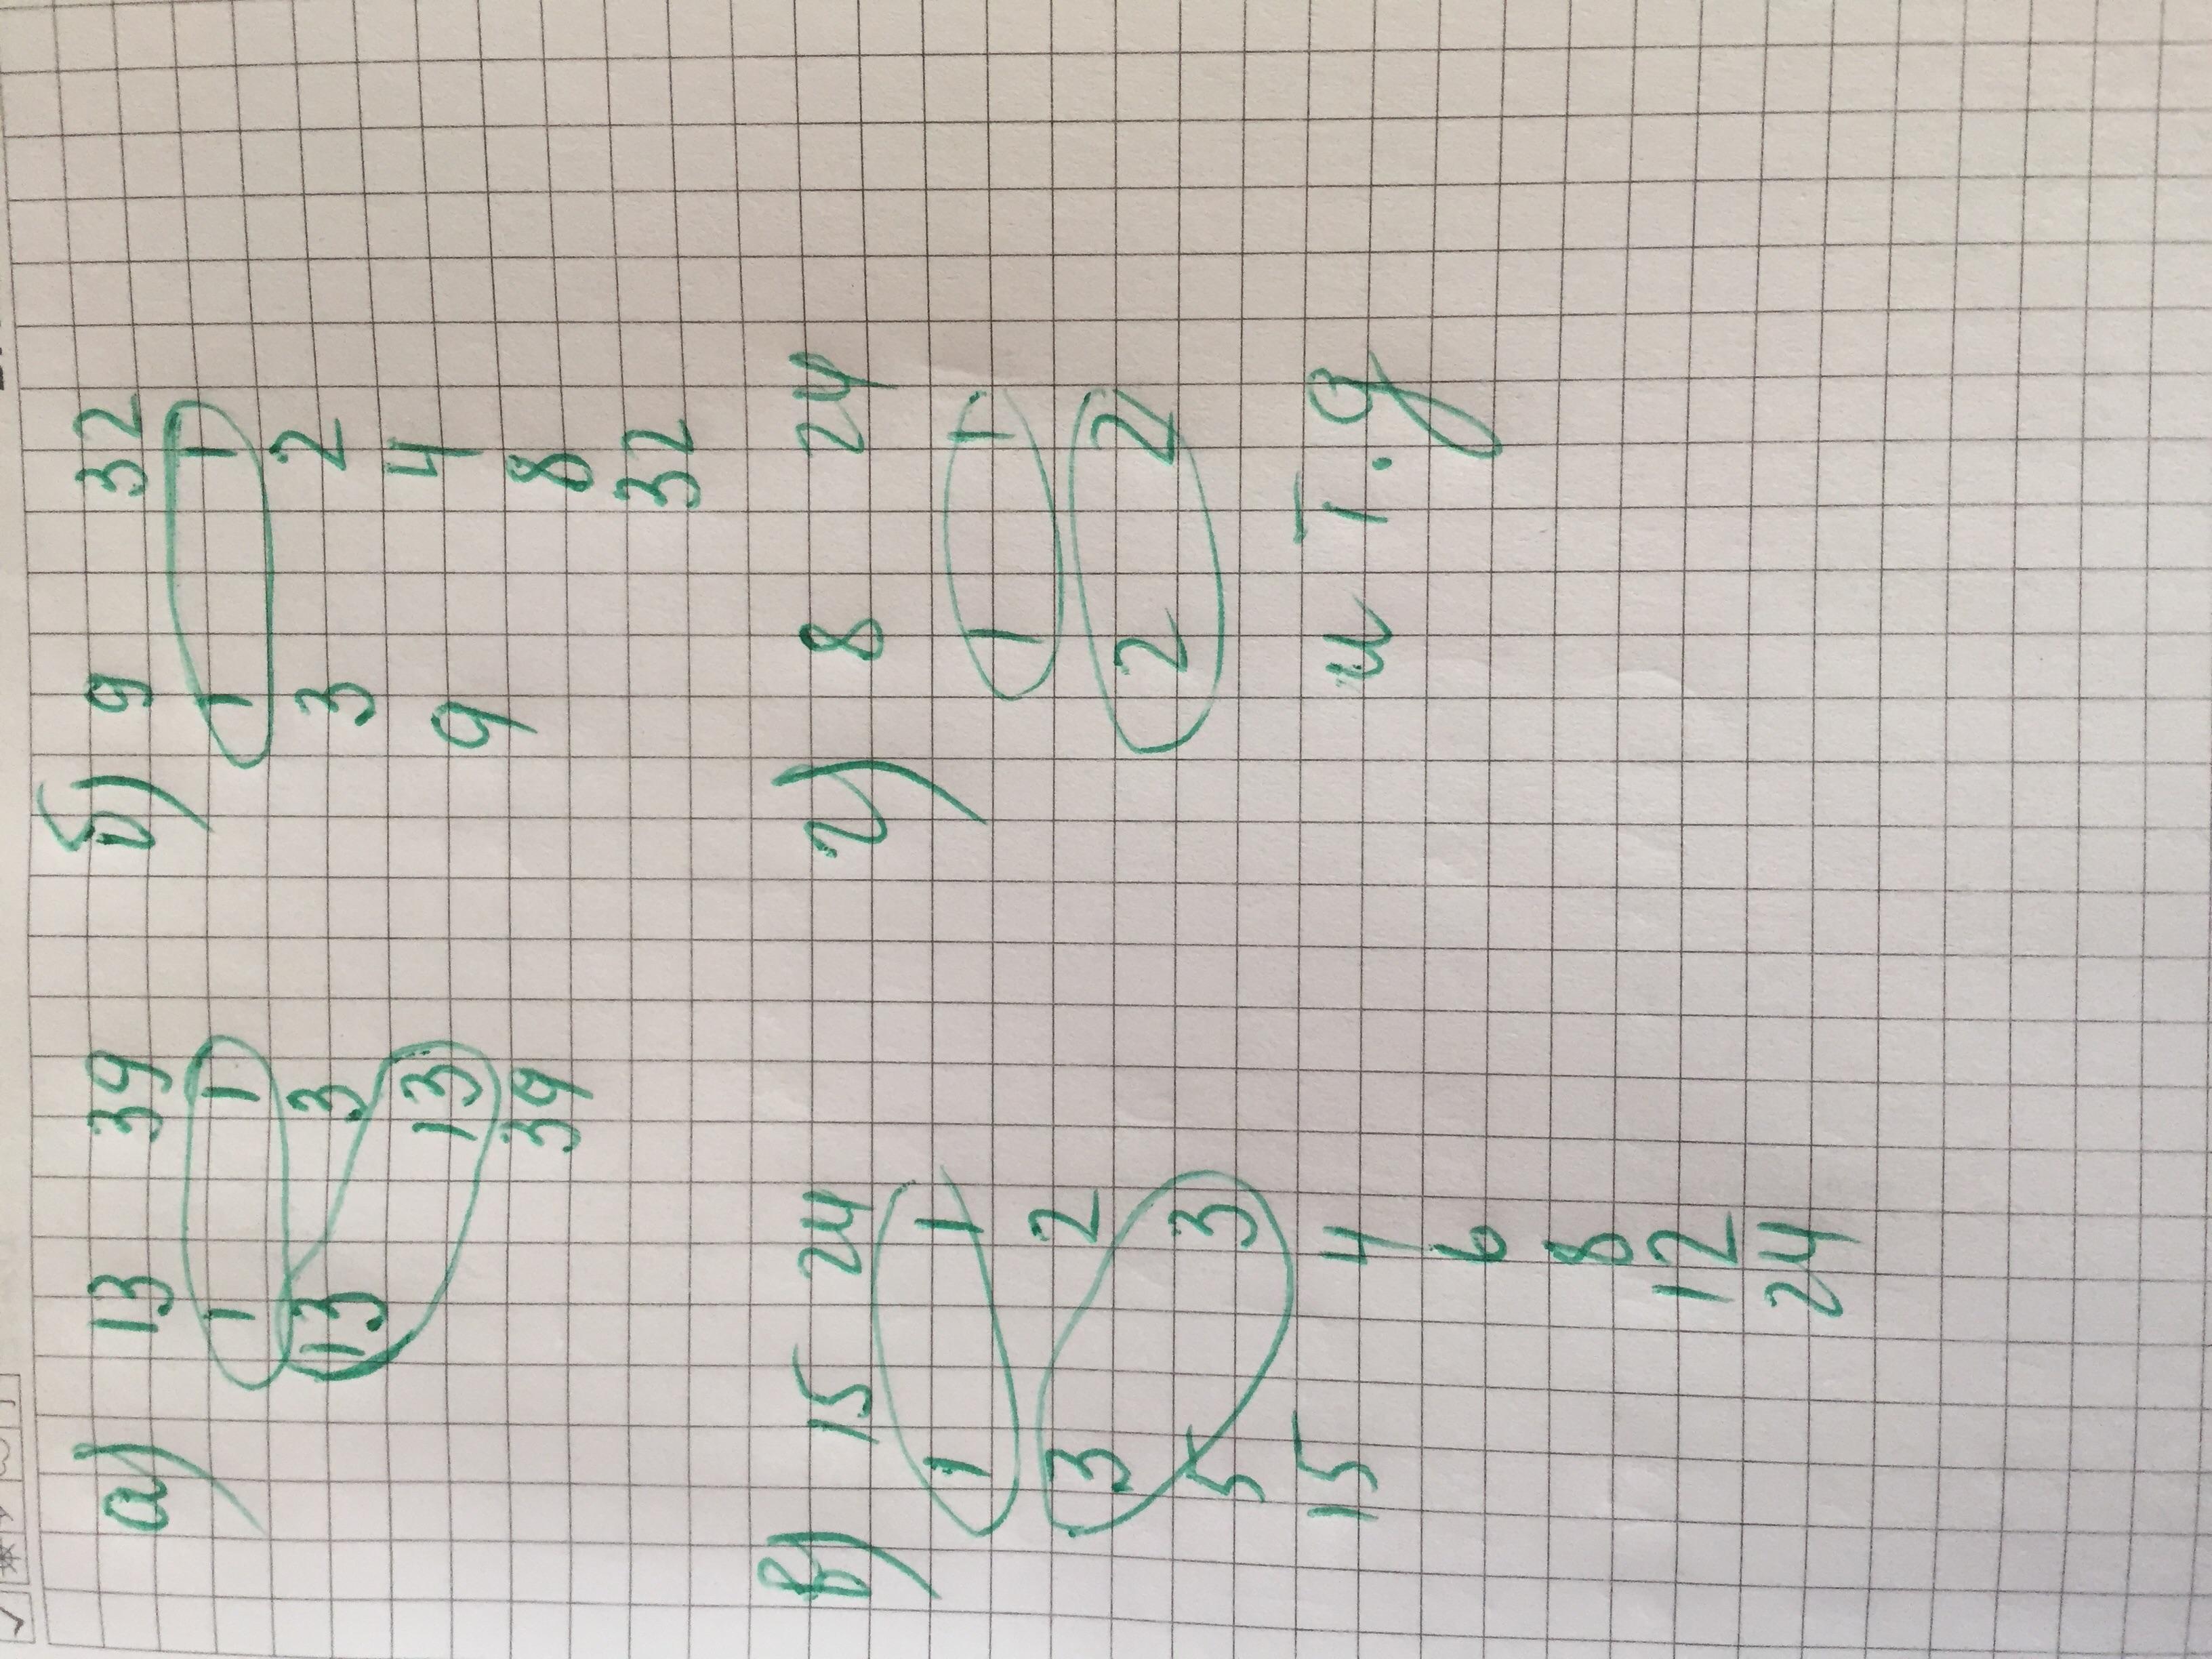 а) 13 39 б) 9 32
1 1 1 1
13 3 3 2
13 9 4
39 8
32
в) 15 24 г) 8 24
1 1 1 1
3 2 2 2
5 3 и т.д
15 4
6
8
12
24